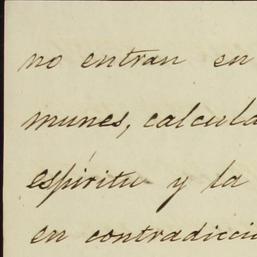 no entran en
munes, calcula
espíritu y la
en contradicci